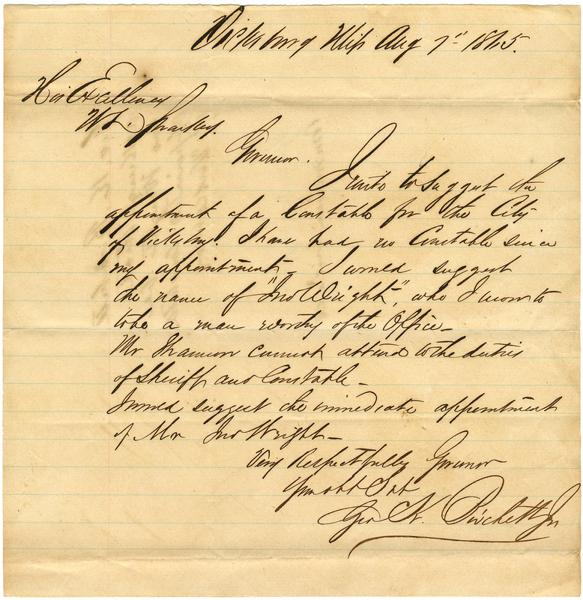 Vicksburg Miss Aug 7th 1865.
His Excellency
W. L. Sharkey.
Governor.
I write to suggest the
appointment of a Constable for the City
of Vicksburg. I have had no Constable since
my appointment. I would suggest
the name of "Jno Wright", who I know to
to be a man worthy of the Office_
Mr Shannon cannot attend to the duties
of Sheriff and Constable_
I would suggest the immediate appointment
of Mr Jno Wright_
Very Respectfully Governor
Your obt Svt
Geo N.